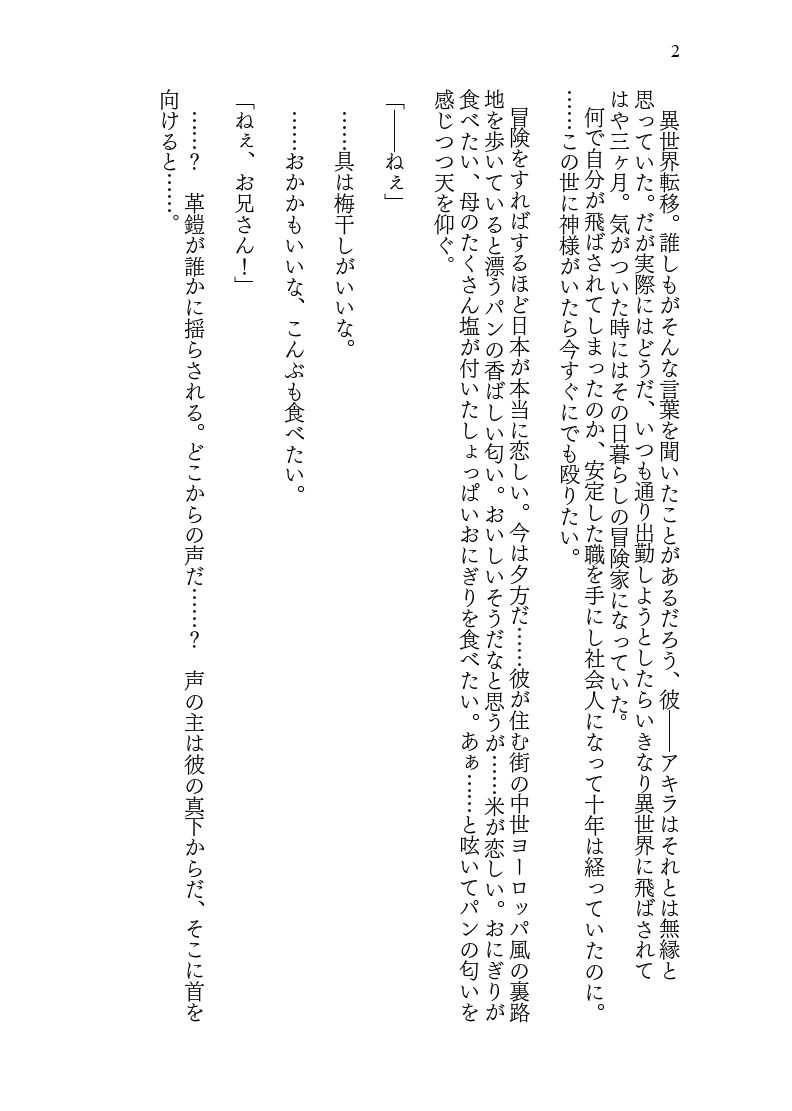 2
　異世界転移。誰しもがそんな言葉を聞いたことがあるだろう、彼――アキラはそれとは無縁と
思っていた。だが実際にはどうだ、いつも通り出勤しようとしたらいきなり異世界に飛ばされて
はや三ヶ月。気がついた時にはその日暮らしの冒険家になっていた。
　何で自分が飛ばされてしまったのか、安定した職を手にし社会人になって十年は経っていたのに。
……この世に神様がいたら今すぐにでも殴りたい。
　冒険をすればするほど日本が本当に恋しい。今は夕方だ……彼が住む街の中世ヨーロッパ風の裏路
地を歩いていると漂うパンの香ばしい匂い。おいしいそうだなと思うが……米が恋しい。おにぎりが
食べたい、母のたくさん塩が付いたしょっぱいおにぎりを食べたい。あぁ……と呟いてパンの匂いを
感じつつ天を仰ぐ。
「――ねぇ」
　……具は梅干しがいいな。
　……おかかもいいな、こんぶも食べたい。
「ねぇ、お兄さん！」
　……？　革鎧が誰かに揺らされる。どこからの声だ……？　声の主は彼の真下からだ、そこに首を
向けると……。